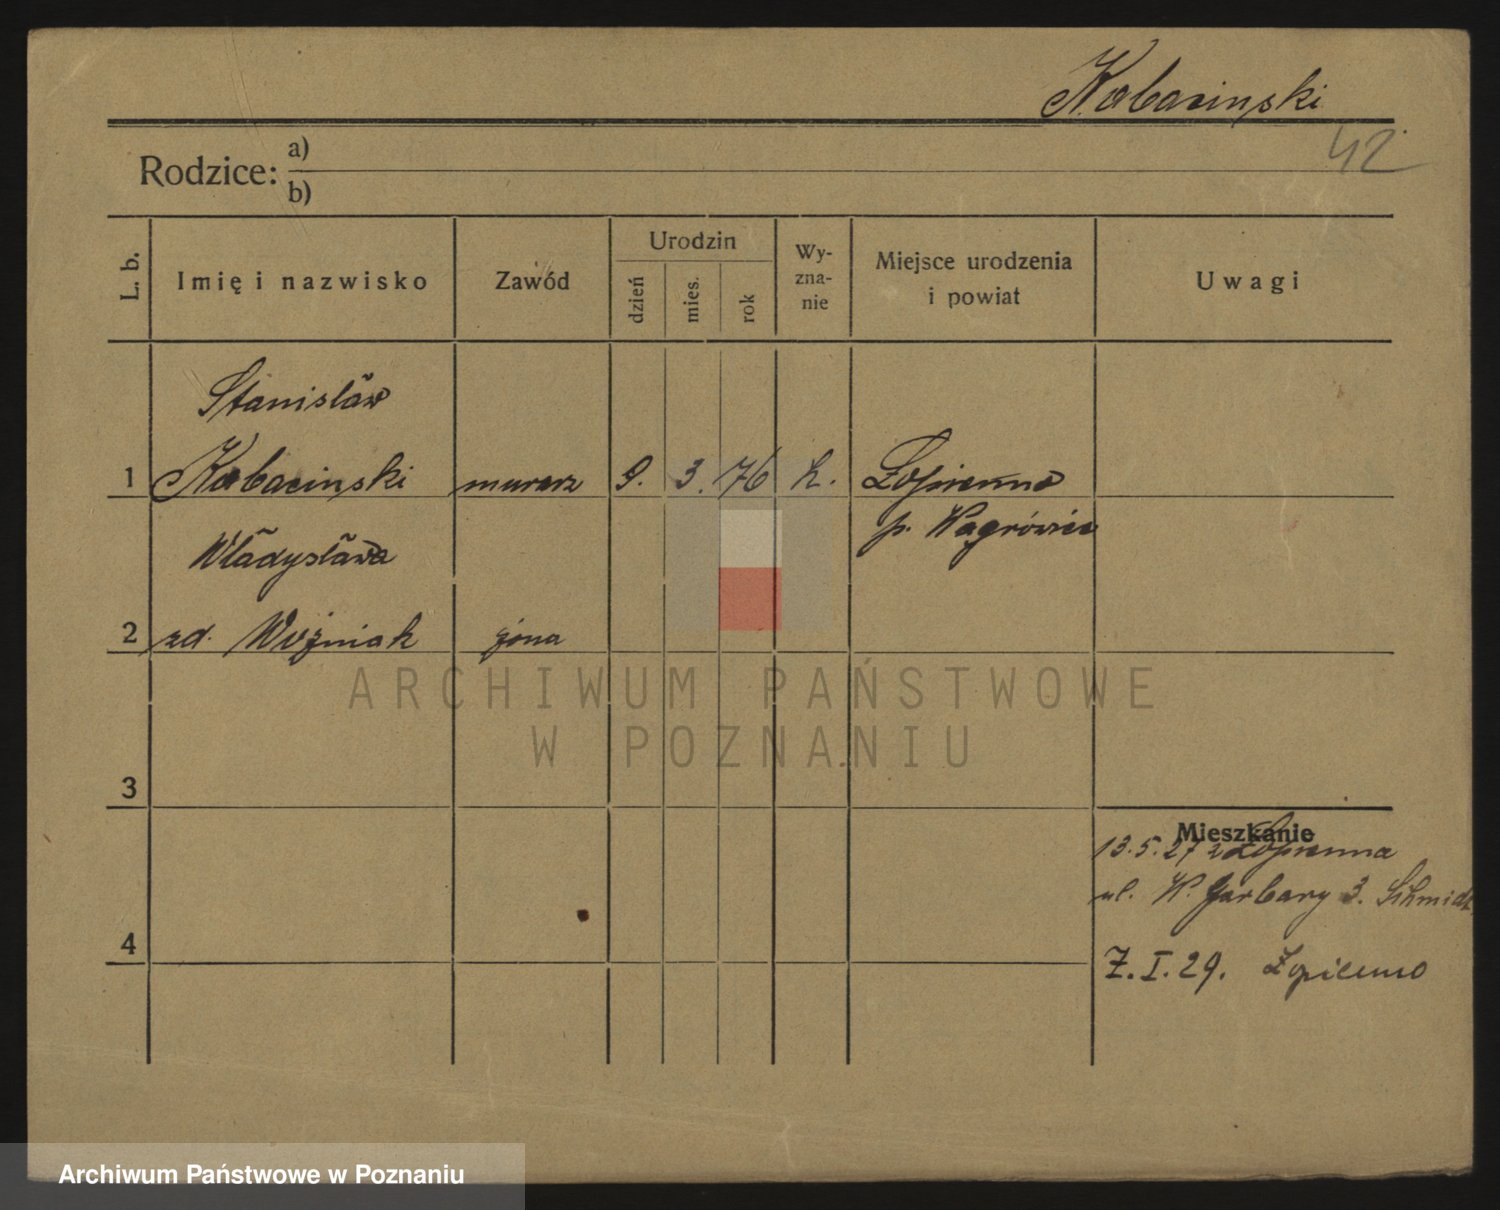 Kabacinski
42
Rodzice: a)
b)
L. b.
Imię i nazwisko
Zawód
Urodzin
dzień
mies.
rok
Wy-
zna-
nie
Miejsce urodzenia
i powiat
Uwagi
Stanisław
1 Kabacinski murarz 9. 3. 76 k. Łopienno
p. Wągrówiec
Władysława
2 zd. Woźniak żona
ARCHIWUM PAŃSTWOWE
W POZNANIU
3
Mieszkanie
13.5.27 z Łopienna
ul. W. Garbary 3. Schmidt
4
7.I.29. Łopienno
Archiwum Państwowe w Poznaniu